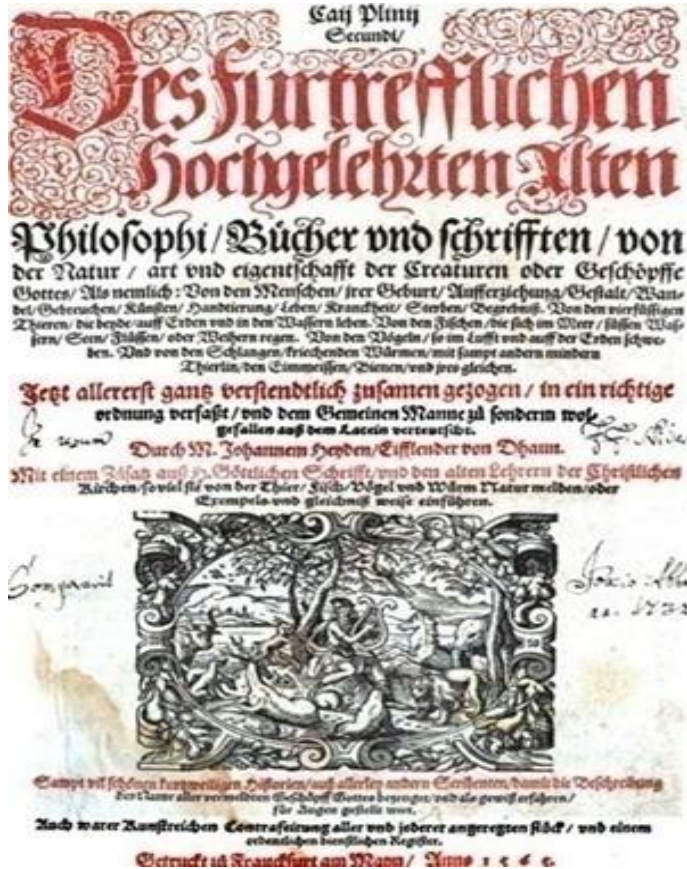 Caij Plinij
Secundi/
Des furtrefflichen
Hochgelehrten Alten
Philosophi/Bücher vnd schrifften/von
der Natur/art vnd eigentschafft der Creaturen oder Geschöpffe
Gottes/Als nemlich: Von den Menschen/irer Geburt/Aufferziehung/Gestalt/Wan-
del/Gebreuchen/Künsten/Handtierung/Leben/Kranckheit/Sterben/Begrebniß. Von den vierfüssigen
Thieren/die beyde/auff Erden vnd in den Wassern leben. Von den Fischen/die sich im Meer/süssen Was-
sern/Seen/Flüssen/oder Weihern regen. Von den Vögeln/so im Lufft vnd auff der Erden schwe-
ben. Vnd von den Schlangen/kriechenden Würmen/mit sampt andern mindern
Thierlin/den Eimmeissen/Bienen/vnd jres gleichen.
Jetzt allererst gantz verstendtlich zusamen gezogen/in ein richtige
ordnung verfaßt/vnd dem Gemeinen Manne zů sonderm wol-
gefallen auß dem Latein verteutscht.
Durch M. Johannem Heyden/Eifflender von Dhaun.
Mit einem Zůsatz auß H. Göttlichen Schrifft/vnd den alten Lehrern der Christlichen
Kirchen/so viel sie von der Thier/Fisch/Vögel vnd Würm Natur melden/oder
Exempels vnd gleichniß weise einführen.
Sampt vil schönen kurtzweiligen Historien/auß allerley andern Scribenten/damit die Beschreibung
der Natur aller vermeldten Geschöpff Gottes bezeuget/vnd als gewiß erfahren/
für Augen gestellt wirt.
Auch warer Kunstreichen Contrafeitung aller vnd jederer angeregten stück/vnd einem
ordentlichen dienstlichen Register.
Getruckt zů Franckfurt am Mayn/Anno 1565.